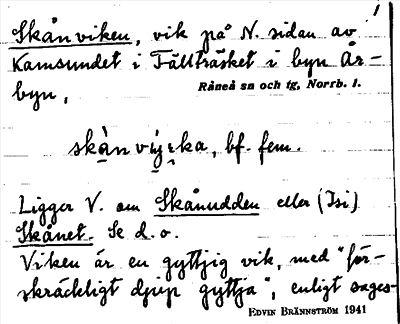 1
Skånviken, vik på N. sidan av
Kamsundet i Fällträsket i byn År-
byn,
Råneå sn och tg, Norrb. l.
bf. fem.
Ligger V. om Skånudden eller (Isi)
Skånet. Se d. o.
Viken är en gyttjig vik, med "för-
skräckligt djup gyttja", enligt sages-
EDVIN BRÄNNSTRÖM 1941